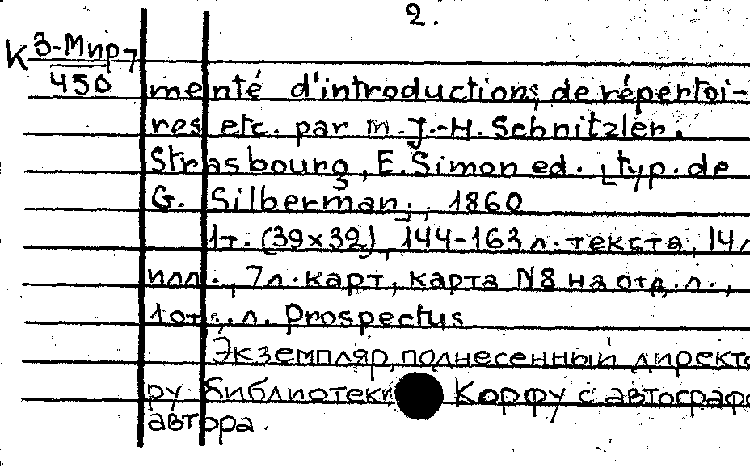 2.
К 3-Мир7
450
menté d'introductions de répertoi-
res etc. par m. J.-H. Schnitzler.
Strasbourg, E. Simon ed. [typ. de
G. Silberman], 1860
1т. (39x32), 144-163 л. текста, 14 л
илл., 7л. карт, карта N8 на отд. л.,
1 отд. л. Prospectus
Экземпляр, поднесенный директо
ру библиотеки Корфу с автографо
автора.